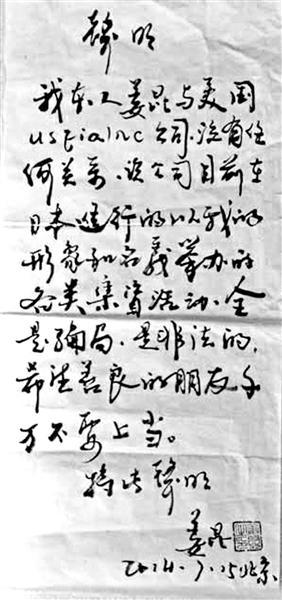 聲明
我本人姜昆与美国
usfia Inc 公司.没有任
何关系.该公司目前在
日本进行的以我的
形象和名義举办的
各类集資活动.全
是骗局.是非法的,
希望善良的朋友千
万不要上当。
特此聲明
姜昆
2014.7.15北京